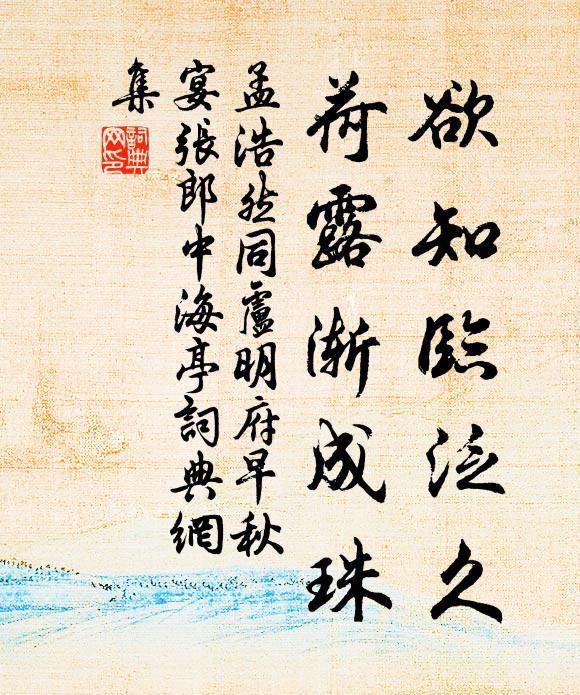 欲知臨泛久
荷露漸成珠
孟浩然同盧明府早秋
宴張郎中海亭詞典網
集
詞典
网印